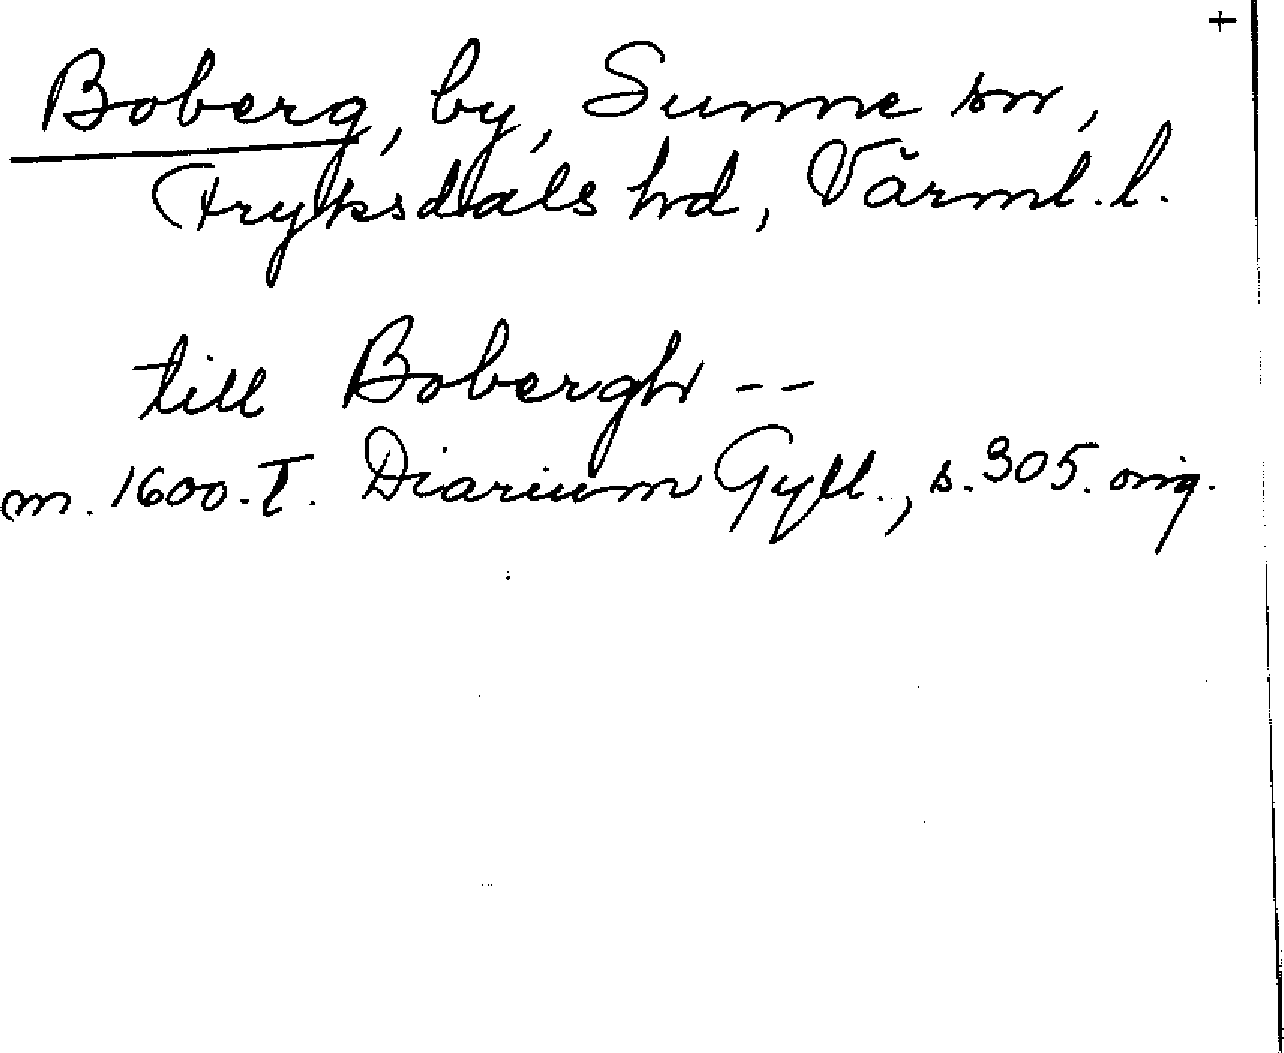 +
Boberg, by, Sunne sn,
Fryksdals hd, Värml. l.
till Bobergh --
m. 1600-T. Diarium Gyll., s. 305. orig.